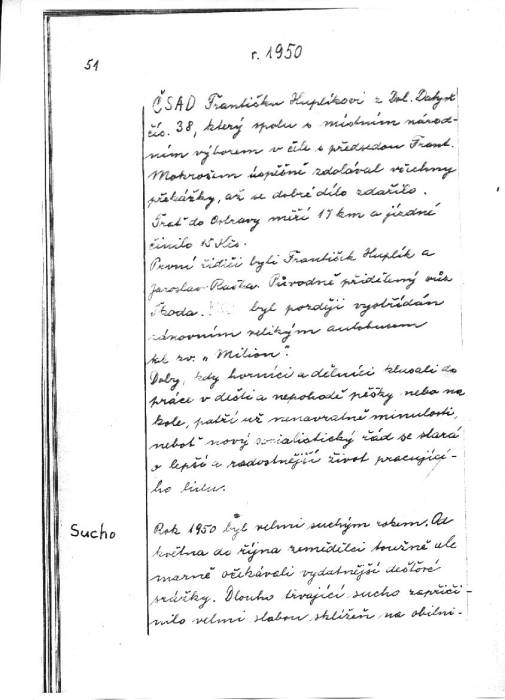 r. 1950
51
ČSAD Františku Huplíkovi z Dol. Datyně
čís. 38, který spolu s místním národ-
ním výborem v čele s předsedou Frant.
Mokrošem úspěšně zdolával všechny
překážky, až se dobré dílo zdařilo.
Trať do Ostravy měří 17 km a jízdné
činilo 15 Kčs.
První řidiči byli František Huplík a
Jaroslav Raška. Původně přidělený vůz
Škoda byl později vystřídán
zánovním velikým autobusem
tak zv. „Milion".
Doby, kdy horníci a dělníci klusali do
práce v dešti a nepohodě pěšky nebo na
kole, patří už nenávratně minulosti,
neboť nový socialistický řád se stará
o lepší a radostnější život pracující-
ho lidu.
Sucho
Rok 1950 byl velmi suchým rokem. Od
května do října zemědělci toužně ale
marně očekávali vydatnější dešťové
srážky. Dlouho trvající sucho zapříči-
nilo velmi slabou sklizeň na obilni-